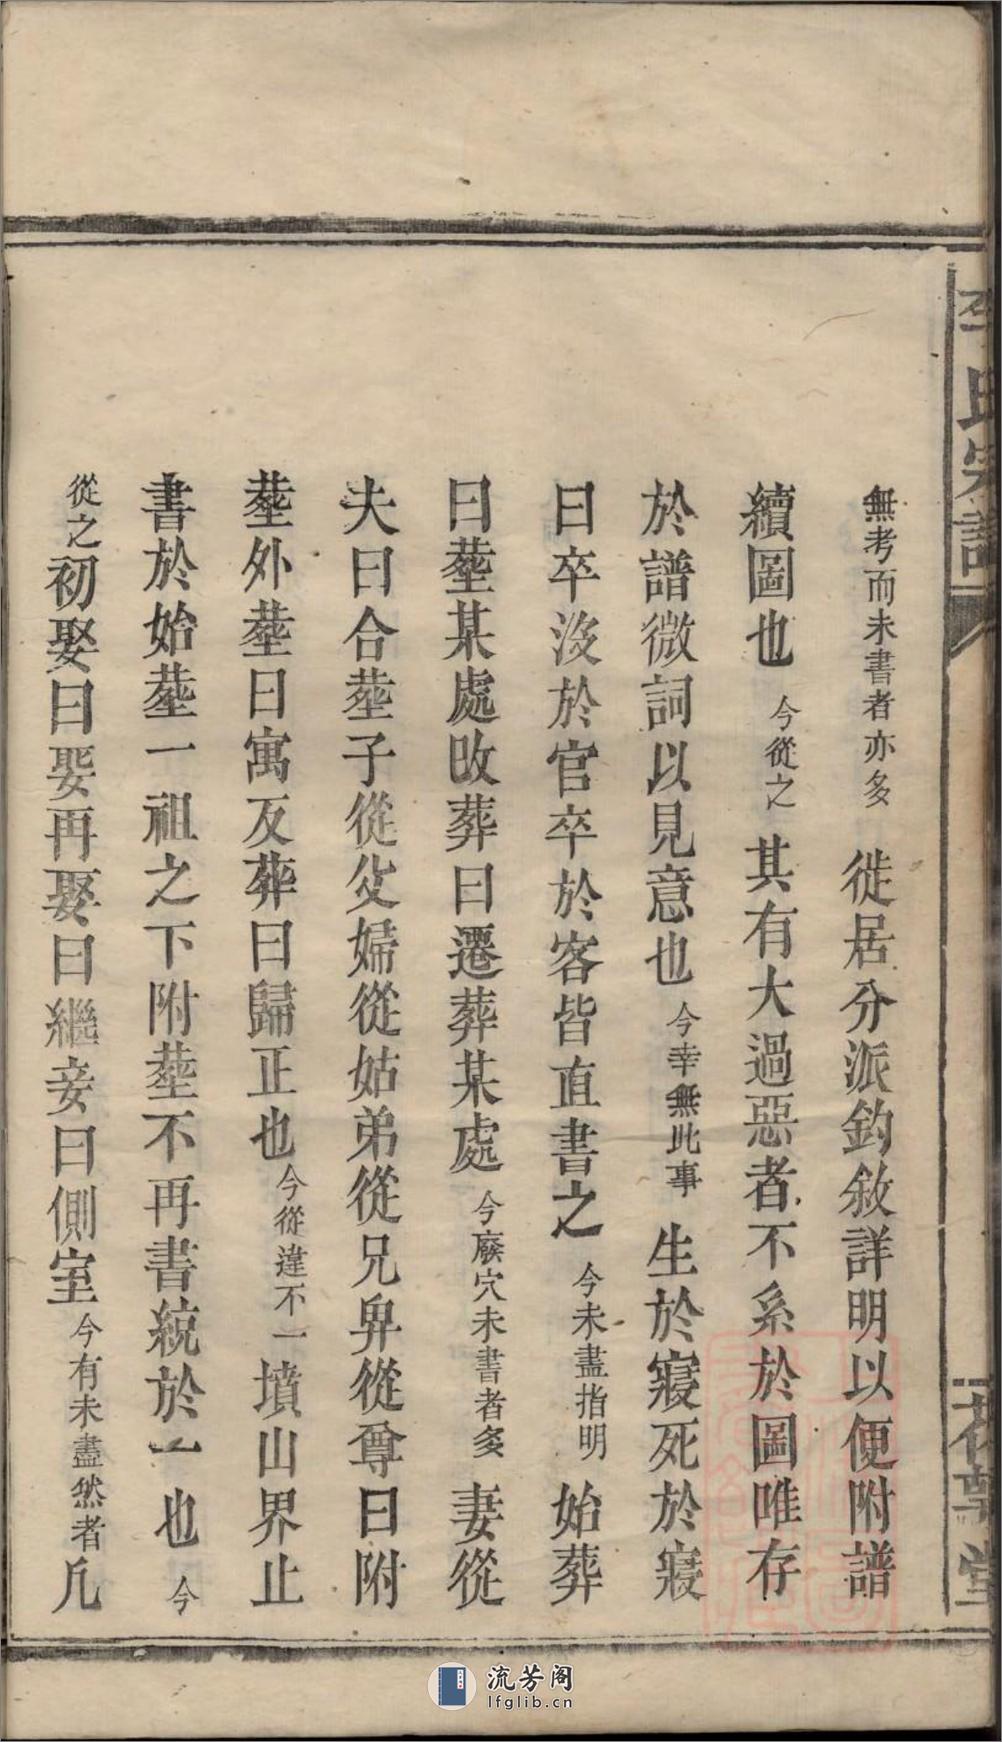 李氏宗譜
無考而未書者亦多 徙居分派鈞敘詳明以便附譜
續圖也 今從之 其有大過惡者不系於圖唯存
於譜微詞以見意也 今幸無此事 生於寢死於寢
曰卒沒於官卒於客皆直書之 今未盡指明 始葬
曰塟某處改葬曰遷葬某處 今厫穴未書者多 妻從
夫曰合塟子從父婦從姑弟從兄卑從尊曰附
塟外塟曰寓反葬曰歸正也 今從違不一 墳山界止
書於始塟一祖之下附塟不再書統於一也 今
從之 初娶曰娶再娶曰繼妾曰側室 今有未盡然者 凡
流芳阁
lfglib.cn